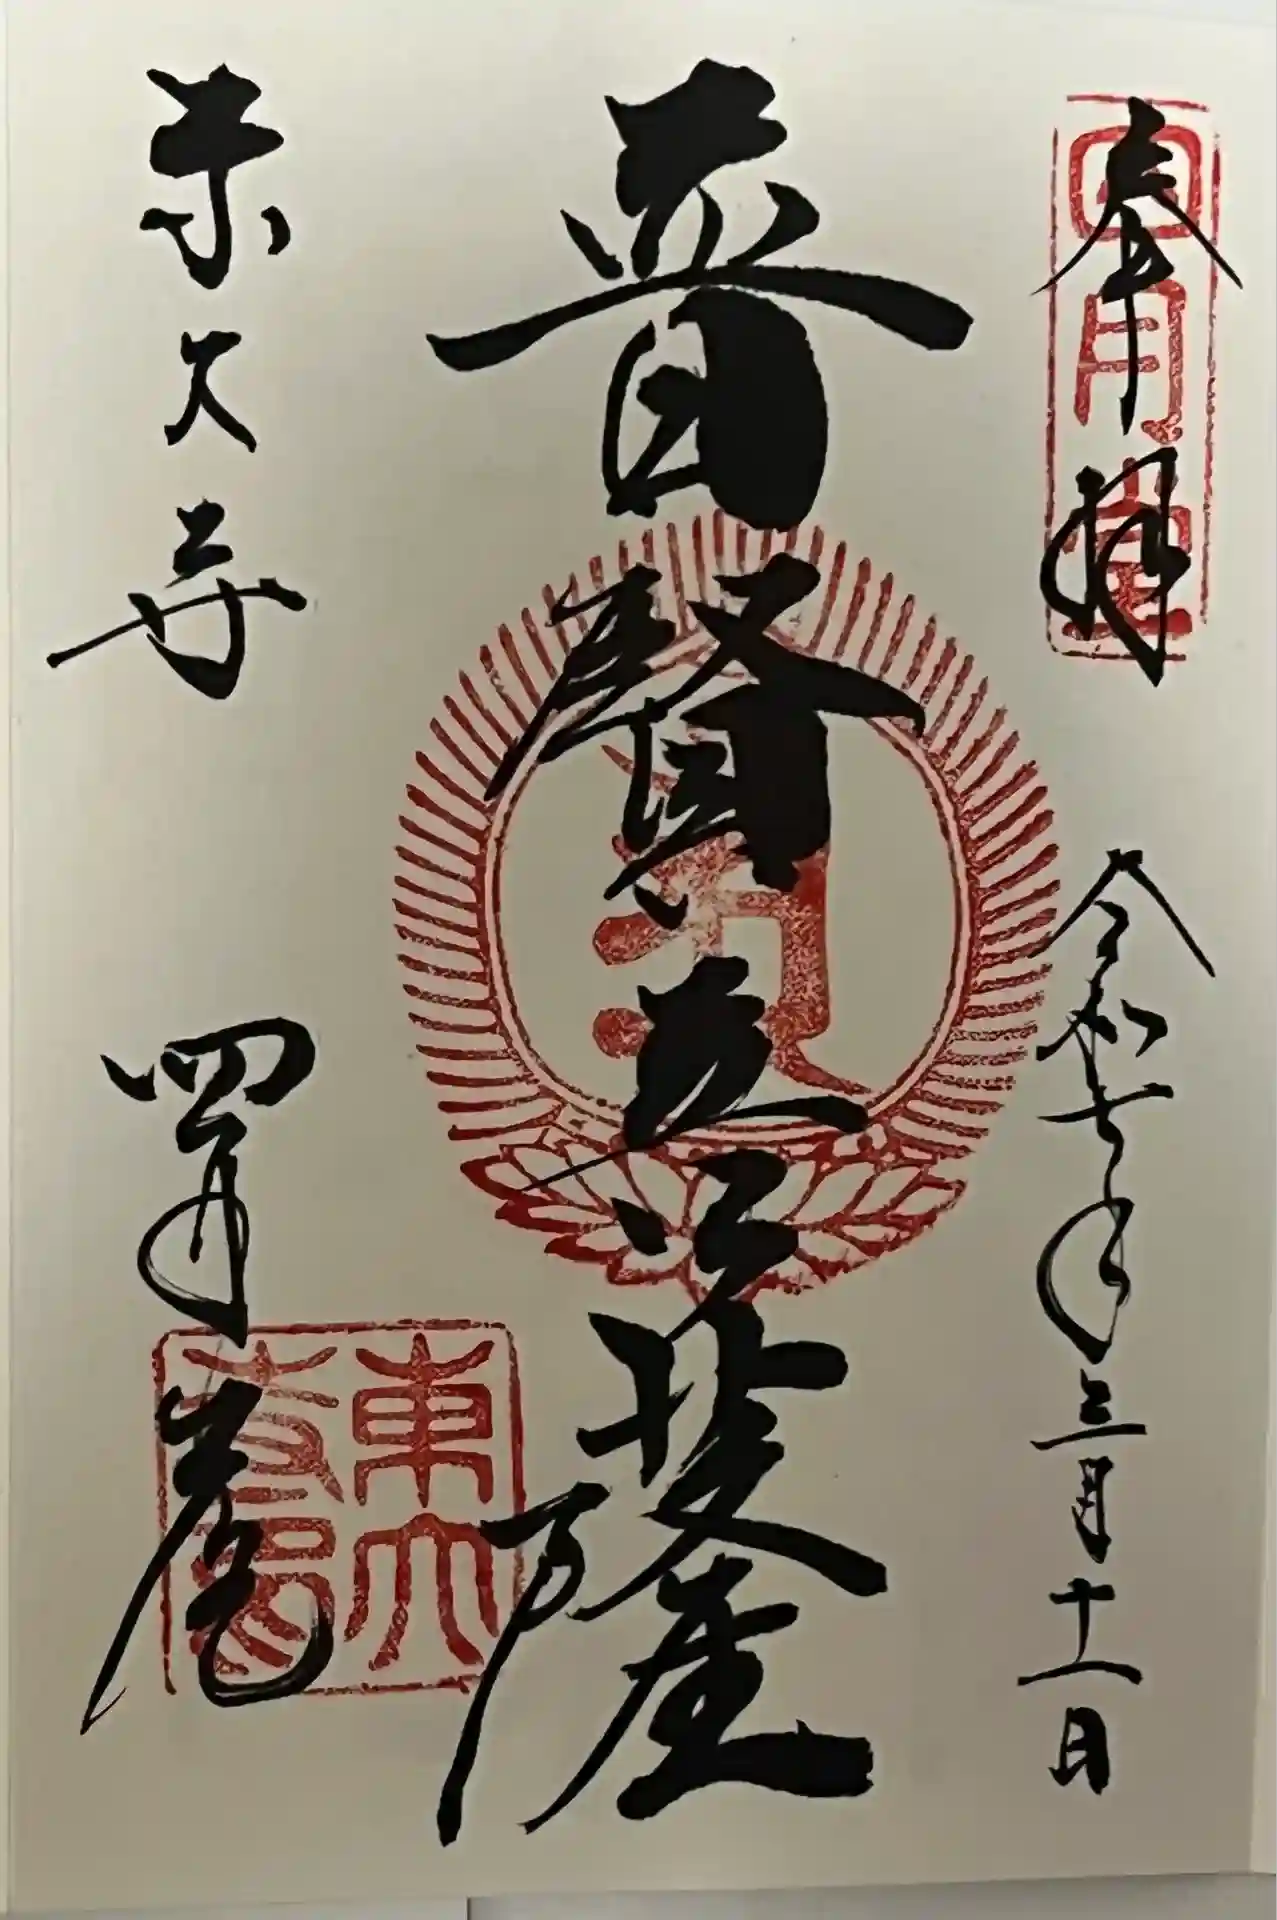 奉拝
四月堂
令和七年三月十一日
普賢菩薩
東大寺
四月堂
東大